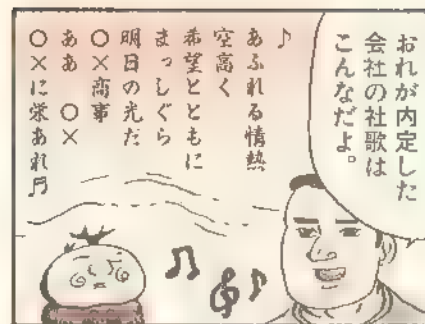 おれが内定した
会社の社歌は
こんなだよ。
♪
あふれる情熱
空高く
希望とともに
まっしぐら
明日の光だ
○×商事
ああ　○×
○×に栄あれ♬